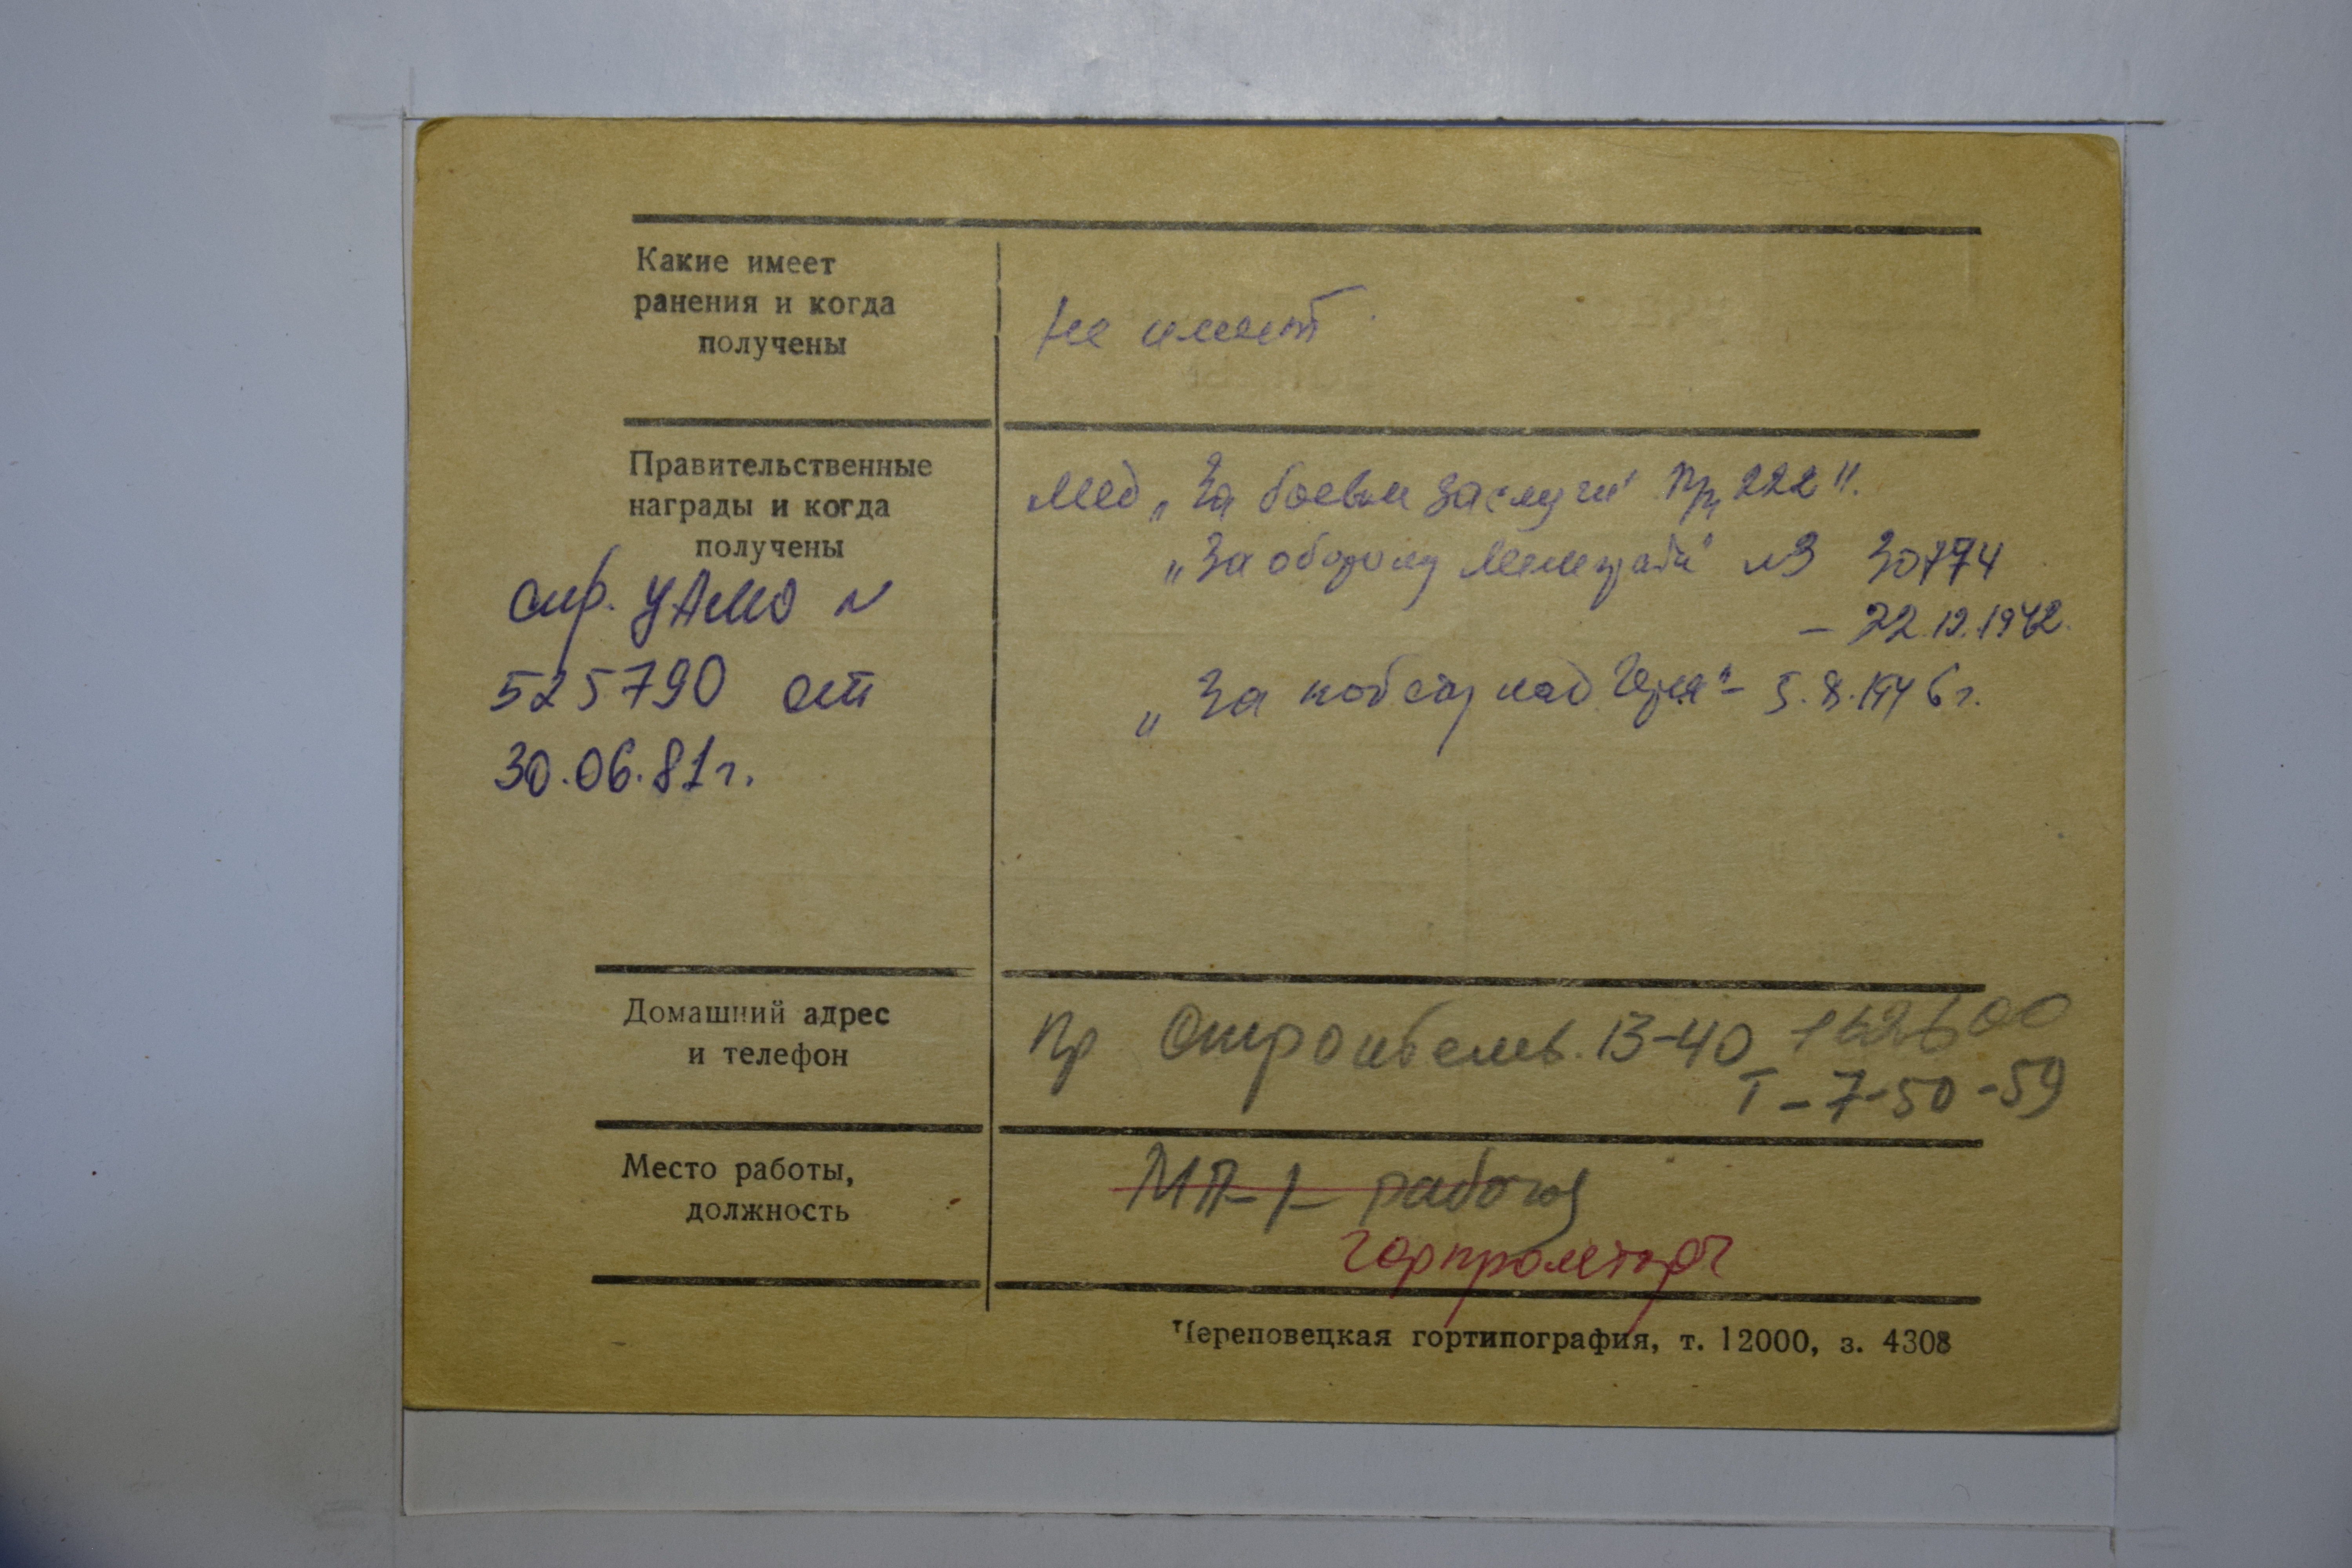 Какие имеет
ранения и когда
получены
не имеет
Правительственные
награды и когда
получены
Мед „За боевые заслуги" Пр 222 н.
„За оборону Ленинграда" 30774
– 22.12.1942.
„За победу над Герм" – 5.8.1946 г.
спр. ЦАМО N
525790 от
30.06.81г.
Домашний адрес
и телефон
Пр Строител. 13-40 162600
Т – 7-50-59
Место работы,
должность
МП-1- рабочая
горпромторг
Череповецкая гортипография, т. 12000, з. 4308